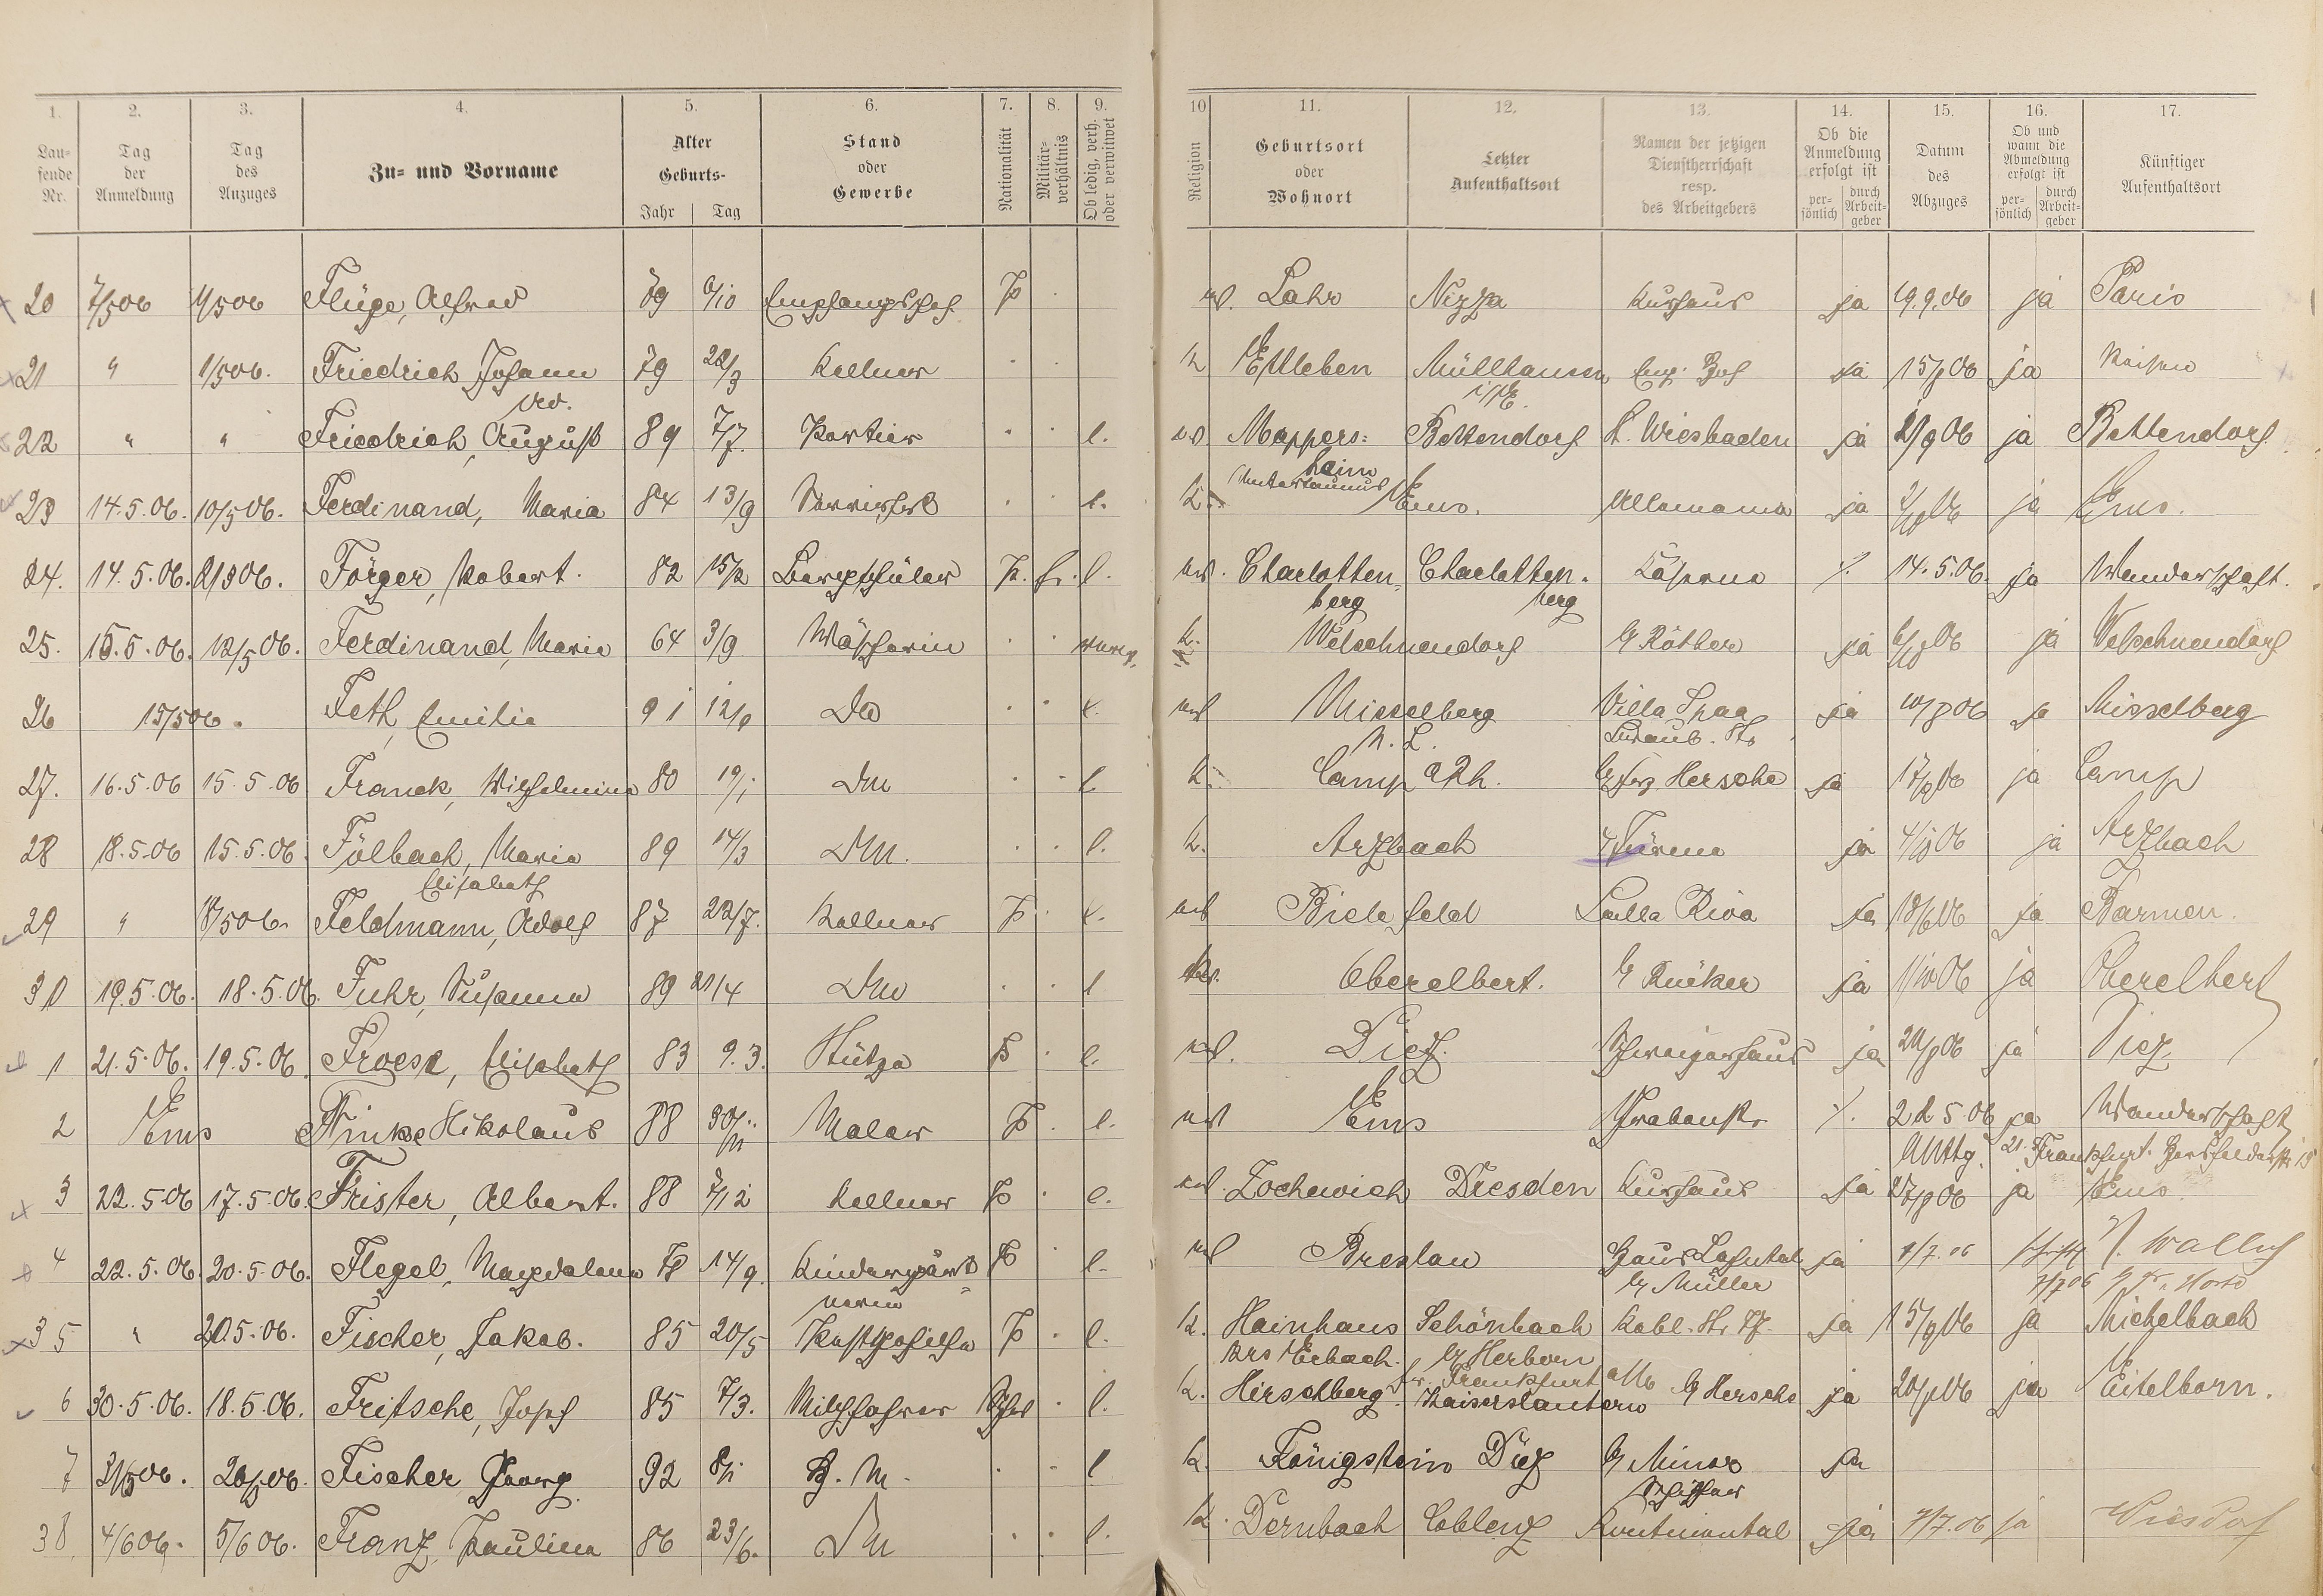 1. 2. 3. 4. 5. 6. 7. 8. 9. 10 11. 12. 13. 14. 15. 16. 17.
Lau-
fende
Nr.
Tag
der
Anmeldung
Tag
des
Anzuges
Zu- und Vorname
Alter
Geburts-
Jahr Tag
Stand
oder
Gewerbe
Nationalität
Militär-
verhältnis
Ob ledig, verh.
oder verwitwet
Religion
Geburtsort
oder
Wohnort
Letzter
Aufenthaltsort
Namen der jetzigen
Dienstherrschaft
resp.
des Arbeitgebers
Ob die
Anmeldung
erfolgt ist
per-
sönlich
durch
Arbeit-
geber
Datum
des
Abzuges
Ob und
wann die
Abmeldung
erfolgt ist
per-
sönlich
durch
Arbeit-
geber
Künftiger
Aufenthaltsort
20 7/5 06 1/5 06 Flüge, Alfred 79 Empfangschef P Lahr Nizza Kurhaus ja 19.9.06 ja Paris
21 " 1/5 06. Friedrich Johann 79 22/3 Kellner k Etlleben Müllhausen Eng. Hof ja 15/9 06 ja
i/E.
22 " " Friedrich, August 89 7/7. Portier l. ev. Mappers: Bettendorf St. Wiesbaden ja 21/9 06 ja Bettendorf
heim
Untertaunus
23 14.5.06. 10/5 06. Ferdinand, Maria 84 13/9 Servierfrl l. k. Ems. Allemania ja ja Ems.
24. 14.5.06. Förger, Robert. 82 15/2 Bergschüler P. l. ev. Charlotten- Charlotten- ./. 14.5.06. ja Wanderschaft.
berg berg
25. 15.5.06. 12/5 06. Ferdinand, Maria 64 3/9 Wäscherin k. Welschneudorf Röther ja ja Welschneudorf
26 15/5 06. Feth, Emilie 91 Dm l. ev Misselberg Villa Spaa ja 10/8 06 ja Misselberg
27. 16.5.06 15.5.06 Franck, Wilhelmine 80 19/1 Dm l. k. Camp a Rh. Hersche ja 17/9 06 ja Camp
28 18.5.06 15.5.06. Fölbach, Maria 89 14/3 Dm. l. k. Arzbach ja 4/10 06 ja Arzbach
Elisabeth
29 " Feldmann, Adolf 87 22/7. Kellner P l. ev Bielefeld Villa Riva ja 18/6 06 ja Barmen.
30 19.5.06. 18.5.06. Fuhr, Susanna 89 21/4 Dm l Oberelbert. Rücker ja 1/10 06 ja Oberelbert
1 21.5.06. 19.5.06. Froese, Elisabeth 83 9.3. Stütze P l. ev. Diez. Schweizerhaus ja ja Diez
2 Ems Finke Nikolaus 88 30/11 Maler P. l. ev Ems Grabenstr. ./. 22 5 06 ja Wanderschaft
3 22.5.06 17.5.06. Frister, Albert. 88 7/12 Kellner P l. ev. Zochewich Dresden Kurhaus ja 27/8 06 ja Ems
4 22.5.06. 20.5.06. Flegel, Magdalene 78 14/9. Kindergärt= P l. ev Breslau Haus Lahntal ja 1/7.06
nerin Müller
35 " 20.5.06. Fischer, Jakob. 85 20/5 P l. k. Hainhaus Schönbach ja 15/9 06 ja Michelbach
Krs Erbach. Herborn
6 30.5.06. 18.5.06. Fritsche, Josef 85 7/3. Milchfahrer l. k. Hirschberg Kaiserslautern Hersche ja ja Eitelborn.
7 31/5 06. Fischer Georg. 92 8/1 H. M. l k. Königstein Diez Minor ja
38 4/6 06. 5/6 06. Franz, Paulina 86 23/6. Dm l. k. Dernbach Coblenz ja 7/7.06 ja